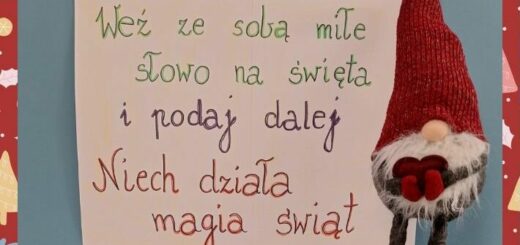 Weź ze sobą miłe
słowo na święta
i podaj dalej
Niech działa
magia świąt